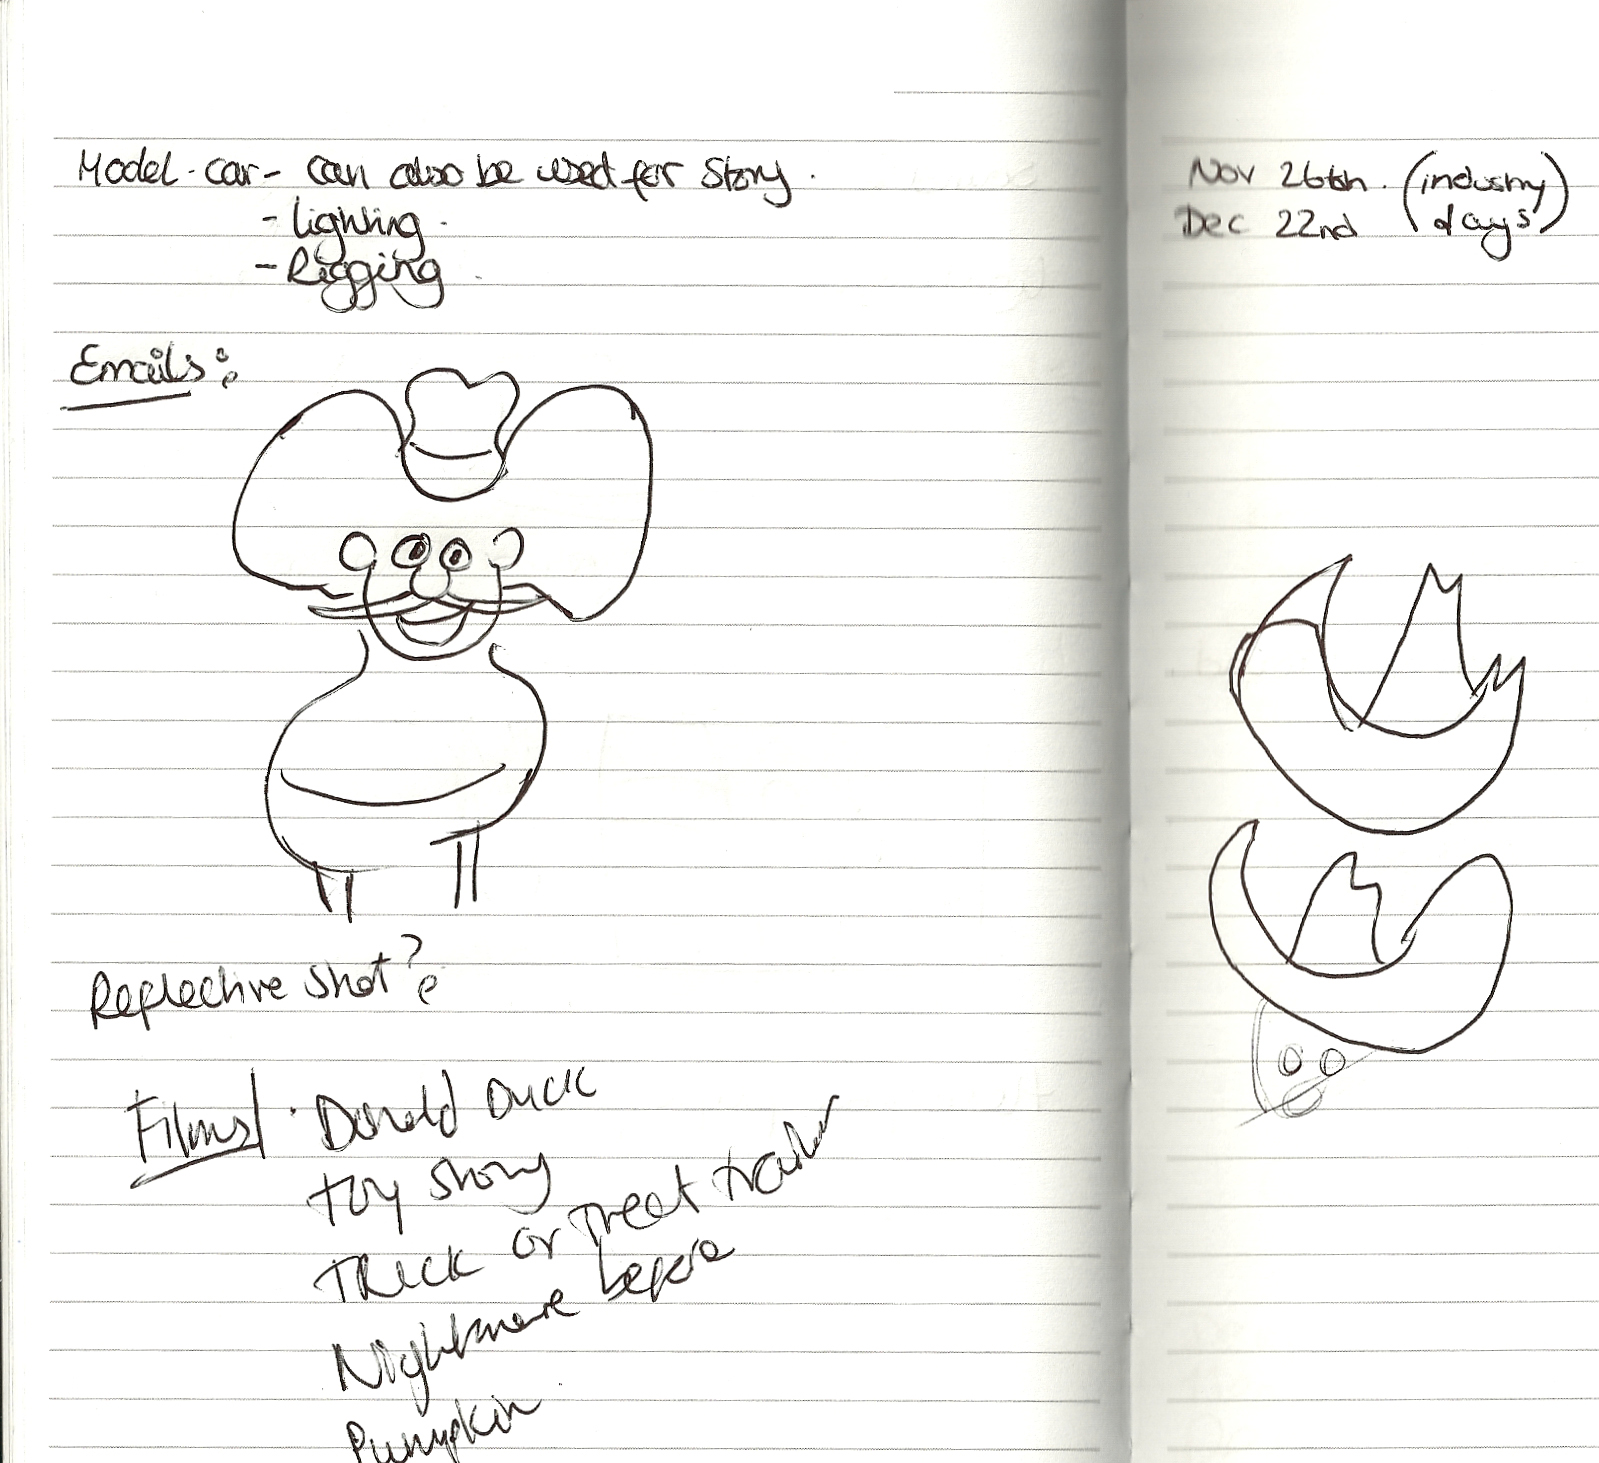 Model - car - can also be used for Story.
- lighting.
- Rigging.
Emails:
Reflective shot?
Films • Donald Duck
Toy Story
TRICK or Treat trailer
Nightmare before
Pumpkin
Nov 26th. (industry
Dec 22nd days)